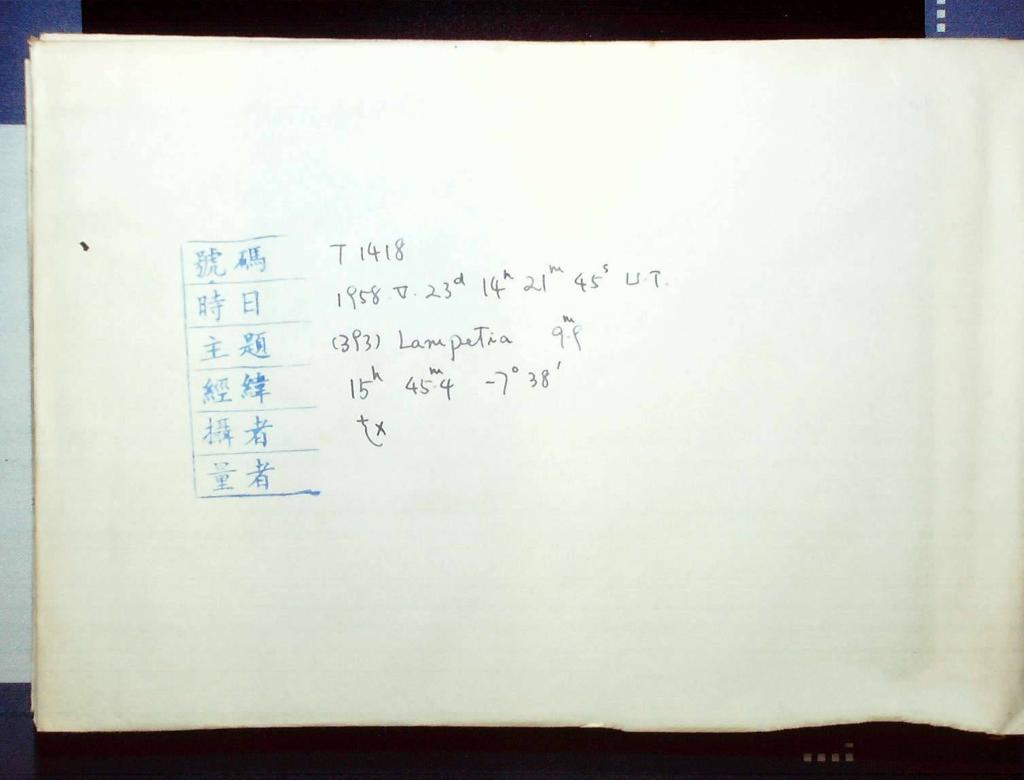 號碼 T 1418
時日 1958. V. 23ᵈ 14ʰ 21ᵐ 45ˢ U.T.
主題 (393) Lampetia 9ᵐ.9
經緯 15ʰ 45ᵐ.4 -7° 38'
攝者
量者